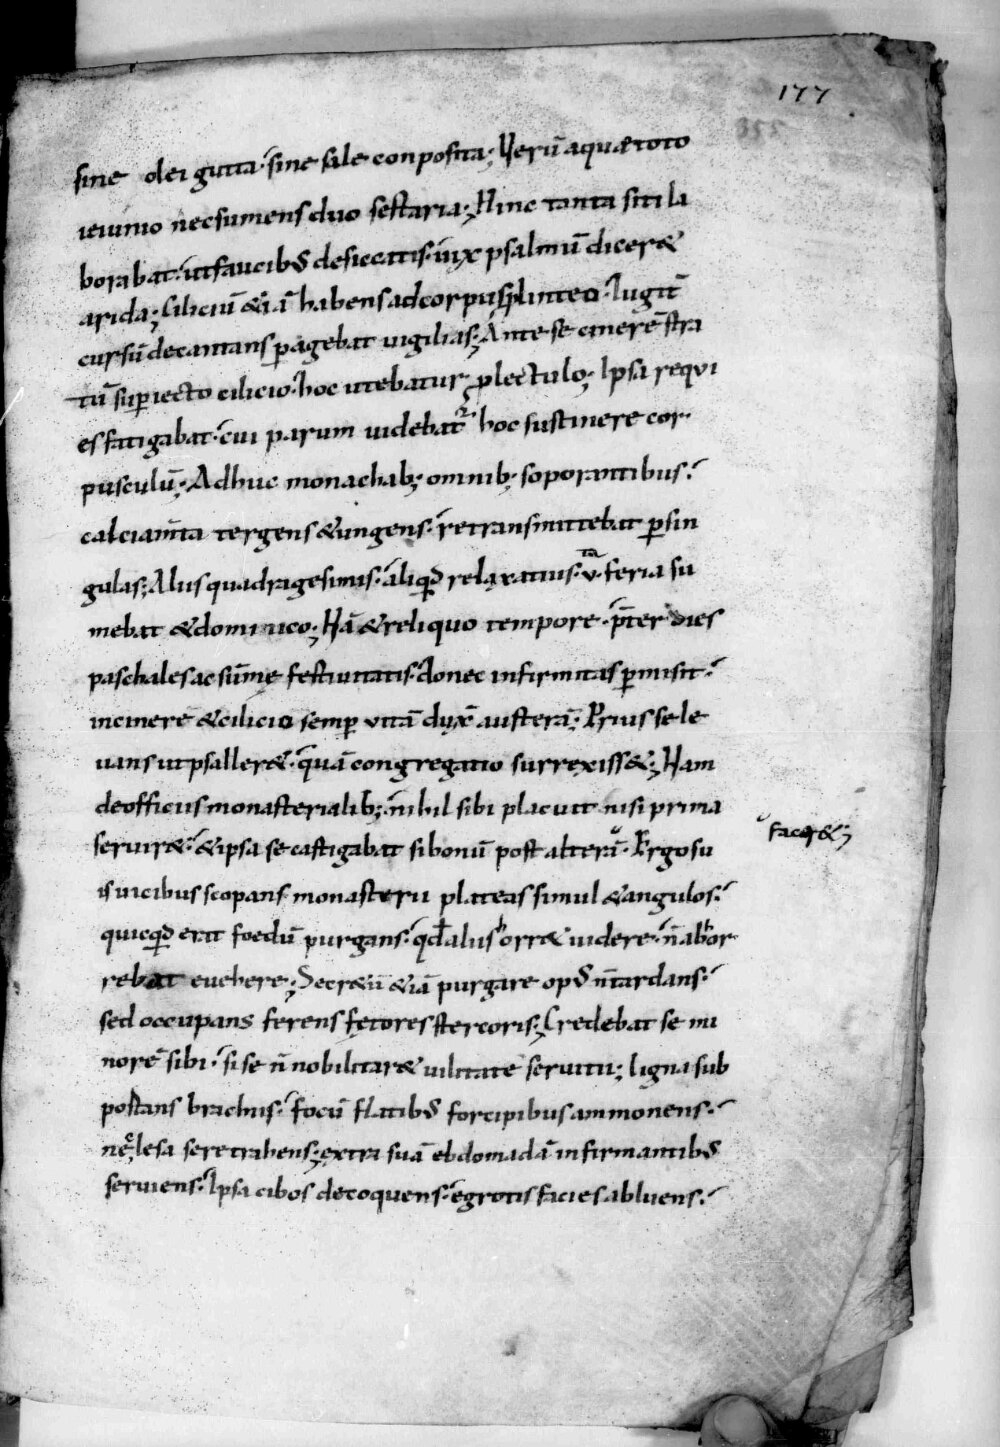 177
355
sine olei gutta· sine sale conposita; Verũ aquæ toto
ieiunio nec sumens duo sestaria; Hinc tanta siti la
borabat· ut faucib; desiccatis· uix psalmũ dicer&
arida; Ciliciũ &iã habens ad corpus p linteo· Iugit̃
cursũ decantans pagebat uigilias; Ante se cinerẽ stra
tũ supiecto cilicio· hoc utebatur plectulo; Ipsa requi
es fatigabat· cui parum uidebat᷑ hoc sustinere cor·
pusculũ; Adhuc monachab; omnib; soporantibus·
calciam̃ta tergens & ungens· retransmittebat p sin
gulas; Aliis quadragesimis· aliqd relaxatius· v·ta feria su
mebat & dominico; Nã & reliquo tempore· p̃ter dies
paschales ac sũmę festiuitatis· donec infirmitas pmisit·
in cinere & cilicio semp uitã dux̃ austerã; Prius se le
uans ut psaller&· quã congregatio surrexiss&; Nam
de officiis monasterialib; nihil sibi placuit nisi prima
seruir&· & ipsa se castigabat si bonũ post alterũ· Ergo su
fac&&;
is uicibus scopans monasterii plateas simul & angulos·
quicqd erat foedũ purgans· qđ alius horr& uidere· ñ abhor·
rebat euehere; Secr&ũ &iã purgare op; ñ tardans·
sed occupans ferens fętores stercoris; Credebat se mi
norẽ sibi· si se ñ nobilitar& uilitate seruitii; Ligna sub
portans brachiis· focũ flatib; forcipibus ammonens·
nec lesa se retrahens; extra suã ebdomadã infirmantib;
seruiens· Ipsa cibos decoquens· egrotis facies abluens·